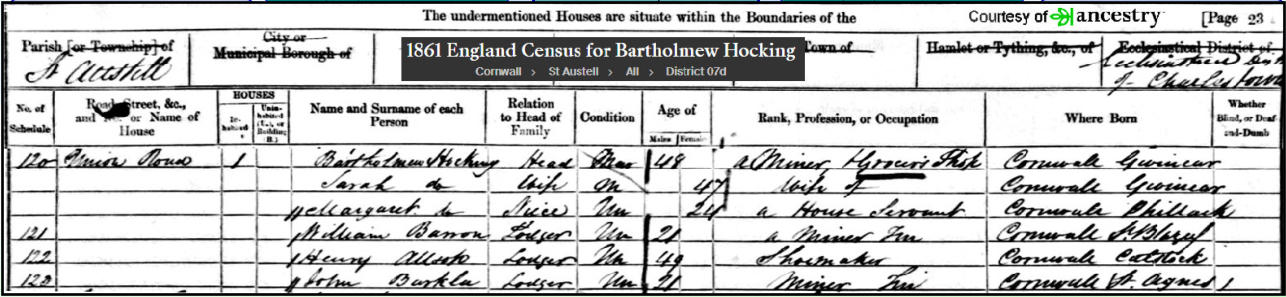 The undermentioned Houses are situate within the Boundaries of the Courtesy of ancestry [Page 23
Parish [or Township] of City or Municipal Borough of Town of Hamlet or Tything, &c., of Ecclesiastical District of
St Austell Ecclesiastical Dist of Charlestown
1861 England Census for Bartholmew Hocking
Cornwall > St Austell > All > District 07d
No. of Schedule Road, Street, &c., and No. or Name of House HOUSES Inhabited Uninhabited (U.), or Building (B.) Name and Surname of each Person Relation to Head of Family Condition Age of Males Females Rank, Profession, or Occupation Where Born Whether Blind, or Deaf-and-Dumb
120 Union Road 1 Bartholmew Hocking Head Mar 48 a Miner & Grocers Shop Cornwall Gwinear
Sarah do Wife M 47 Wife of Cornwall Gwinear
Margaret do Niece Un 24 a House Servant Cornwall Phillack
121 William Barron Lodger Un 21 a Miner Tin Cornwall St Blazey
122 Henry Lodger Un 49 Shoemaker Cornwall
123 John Barkla Lodger Un 21 Miner Tin Cornwall St Agnes 1